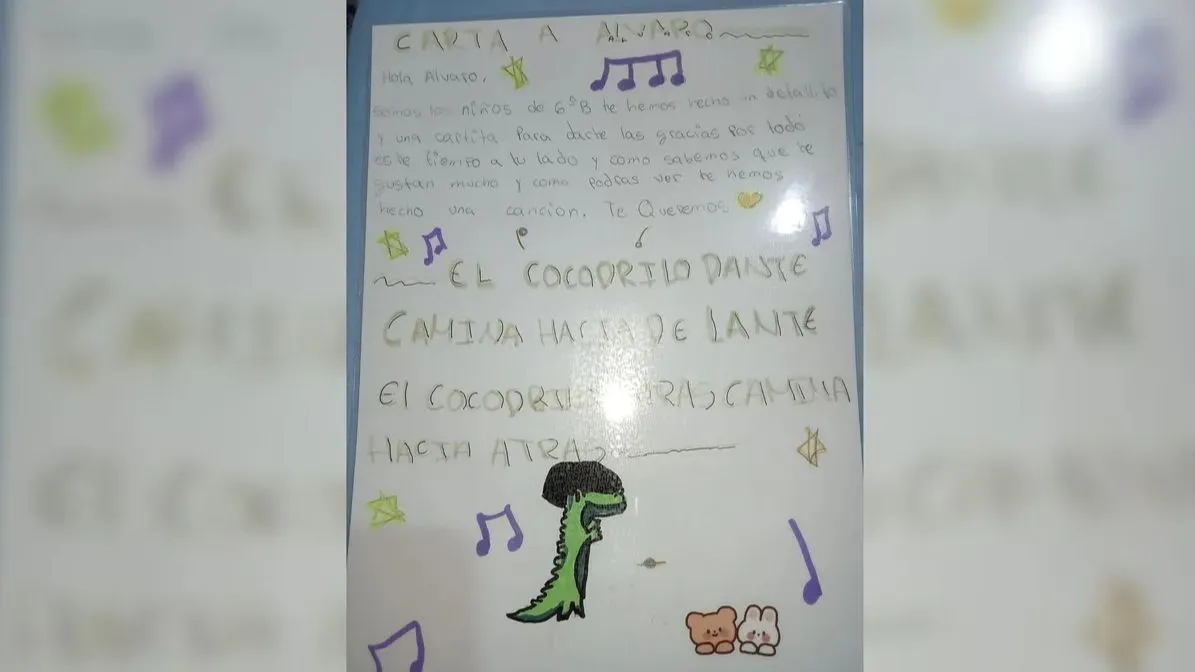 CARTA A ALVARO
Hola Alvaro,
Somos los niños de 6ºB te hemos hecho un detallito
y una cartita. Para darte las gracias por todo
este tiempo a tu lado y como sabemos que te
gustan mucho y como podras ver te hemos
hecho una canción. Te Queremos
EL COCODRILO DANTE
CAMINA HACIA DELANTE
El COCODRILO CAMINA
HACIA ATRAS